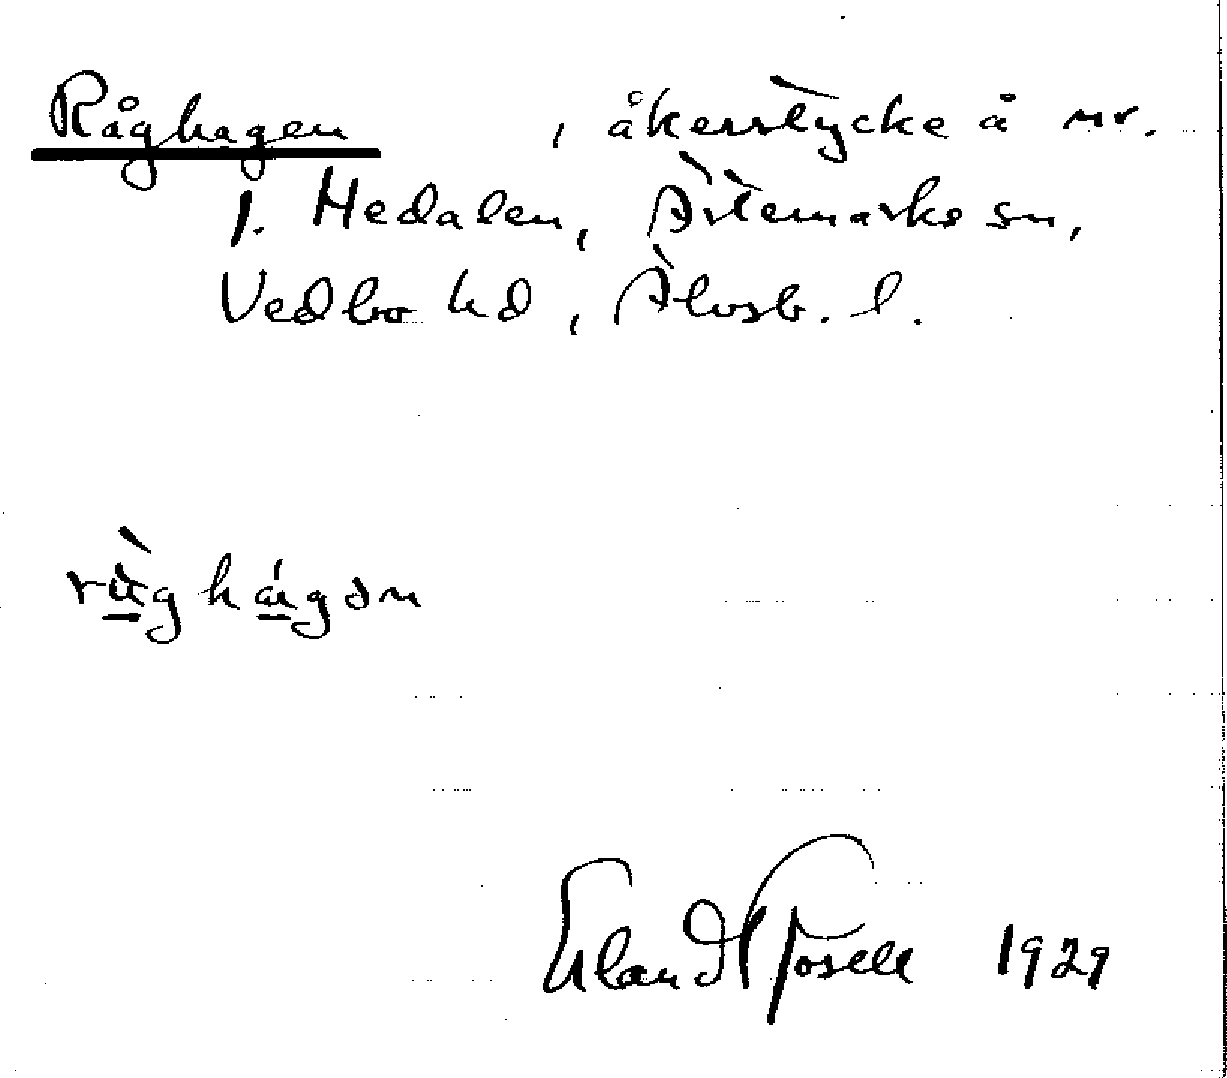 Råghagen, åkerstycke å nr.
1. Hedalen, Ärtemarks sn,
Vedbo hd, Älvsb. l.
rùghágən
Erland Rosell 1929